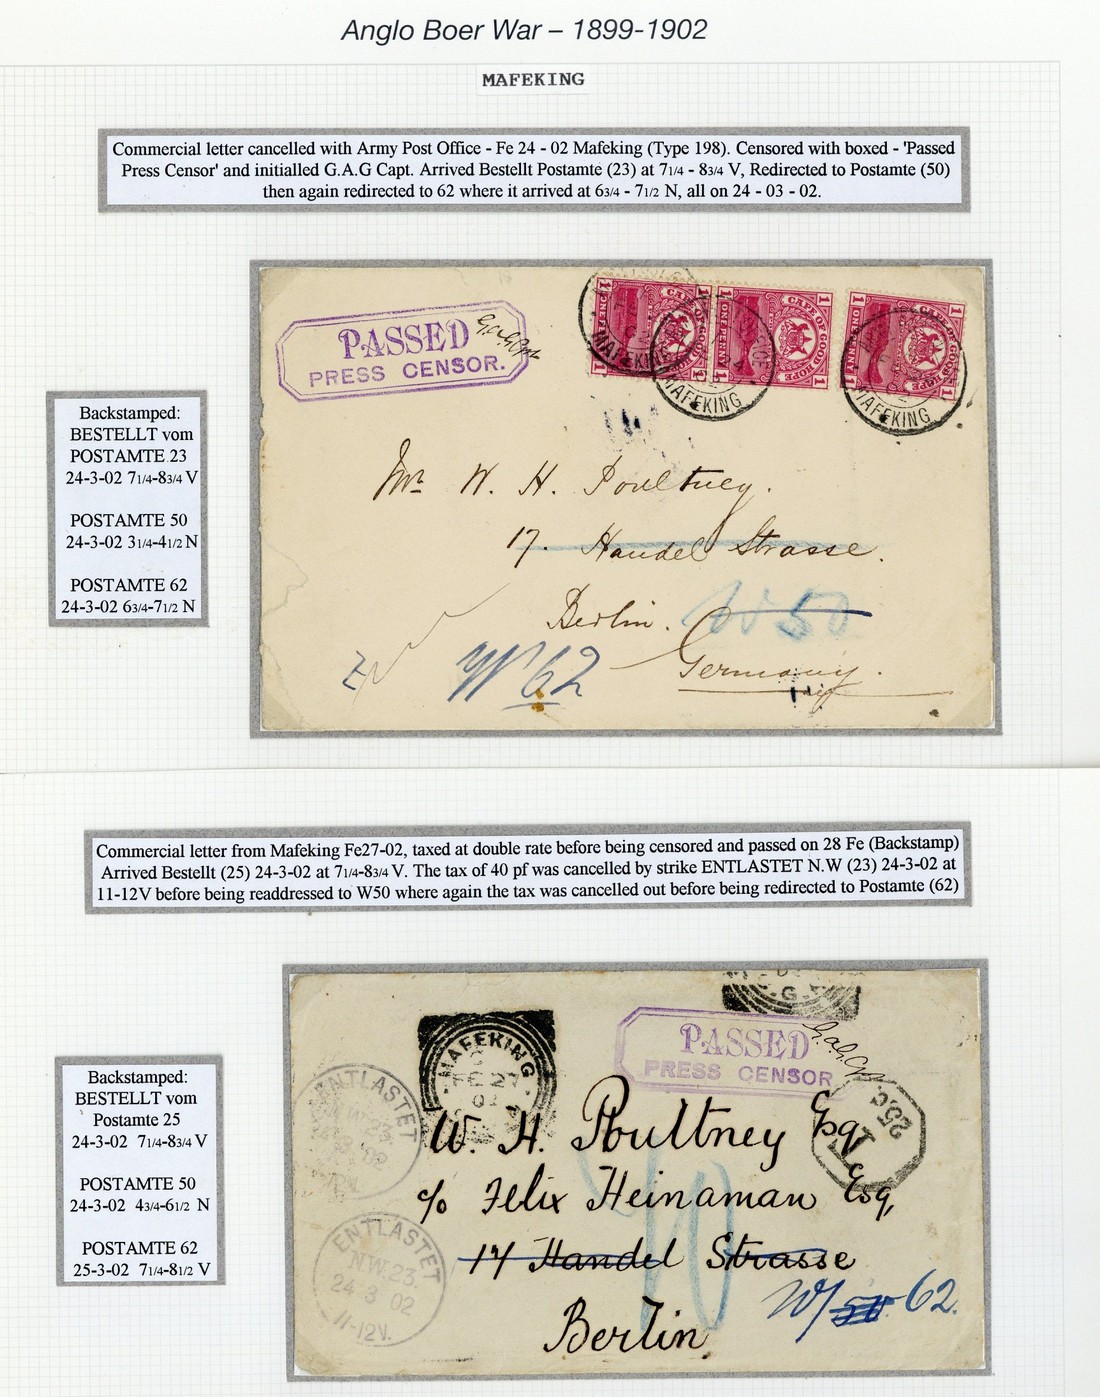 Anglo Boer War – 1899-1902
MAFEKING
Commercial letter cancelled with Army Post Office - Fe 24 - 02 Mafeking (Type 198). Censored with boxed - 'Passed
Press Censor' and initialled G.A.G Capt. Arrived Bestellt Postamte (23) at 7 1/4 - 8 3/4 V, Redirected to Postamte (50)
then again redirected to 62 where it arrived at 6 3/4 - 7 1/2 N, all on 24 - 03 - 02.
PASSED
PRESS CENSOR.
CAPE OF GOOD HOPE
ONE PENNY
1
1
MAFEKING
CAPE OF GOOD HOPE
ONE PENNY
1
1
MAFEKING
CAPE OF GOOD HOPE
ONE PENNY
1
1
MAFEKING
Backstamped:
BESTELLT vom
POSTAMTE 23
24-3-02 7 1/4-8 3/4 V
POSTAMTE 50
24-3-02 3 1/4-4 1/2 N
POSTAMTE 62
24-3-02 6 3/4-7 1/2 N
Mr. W. H. Poultney.
17. Handel Strasse.
Berlin. W 50
W 62 Germany.
Commercial letter from Mafeking Fe27-02, taxed at double rate before being censored and passed on 28 Fe (Backstamp)
Arrived Bestellt (25) 24-3-02 at 7 1/4-8 3/4 V. The tax of 40 pf was cancelled by strike ENTLASTET N.W (23) 24-3-02 at
11-12V before being readdressed to W50 where again the tax was cancelled out before being redirected to Postamte (62)
Backstamped:
BESTELLT vom
Postamte 25
24-3-02 7 1/4-8 3/4 V
POSTAMTE 50
24-3-02 4 3/4-6 1/2 N
POSTAMTE 62
25-3-02 7 1/4-8 1/2 V
MAFEKING
FE 27
02
PASSED
PRESS CENSOR
T
25c.
ENTLASTET
W. H. Poultney Esq
c/o Felix Heinaman Esq,
17 Handel Strasse
Berlin
40
W/50 62.
ENTLASTET
N.W.23.
24 3 02
11-12V.